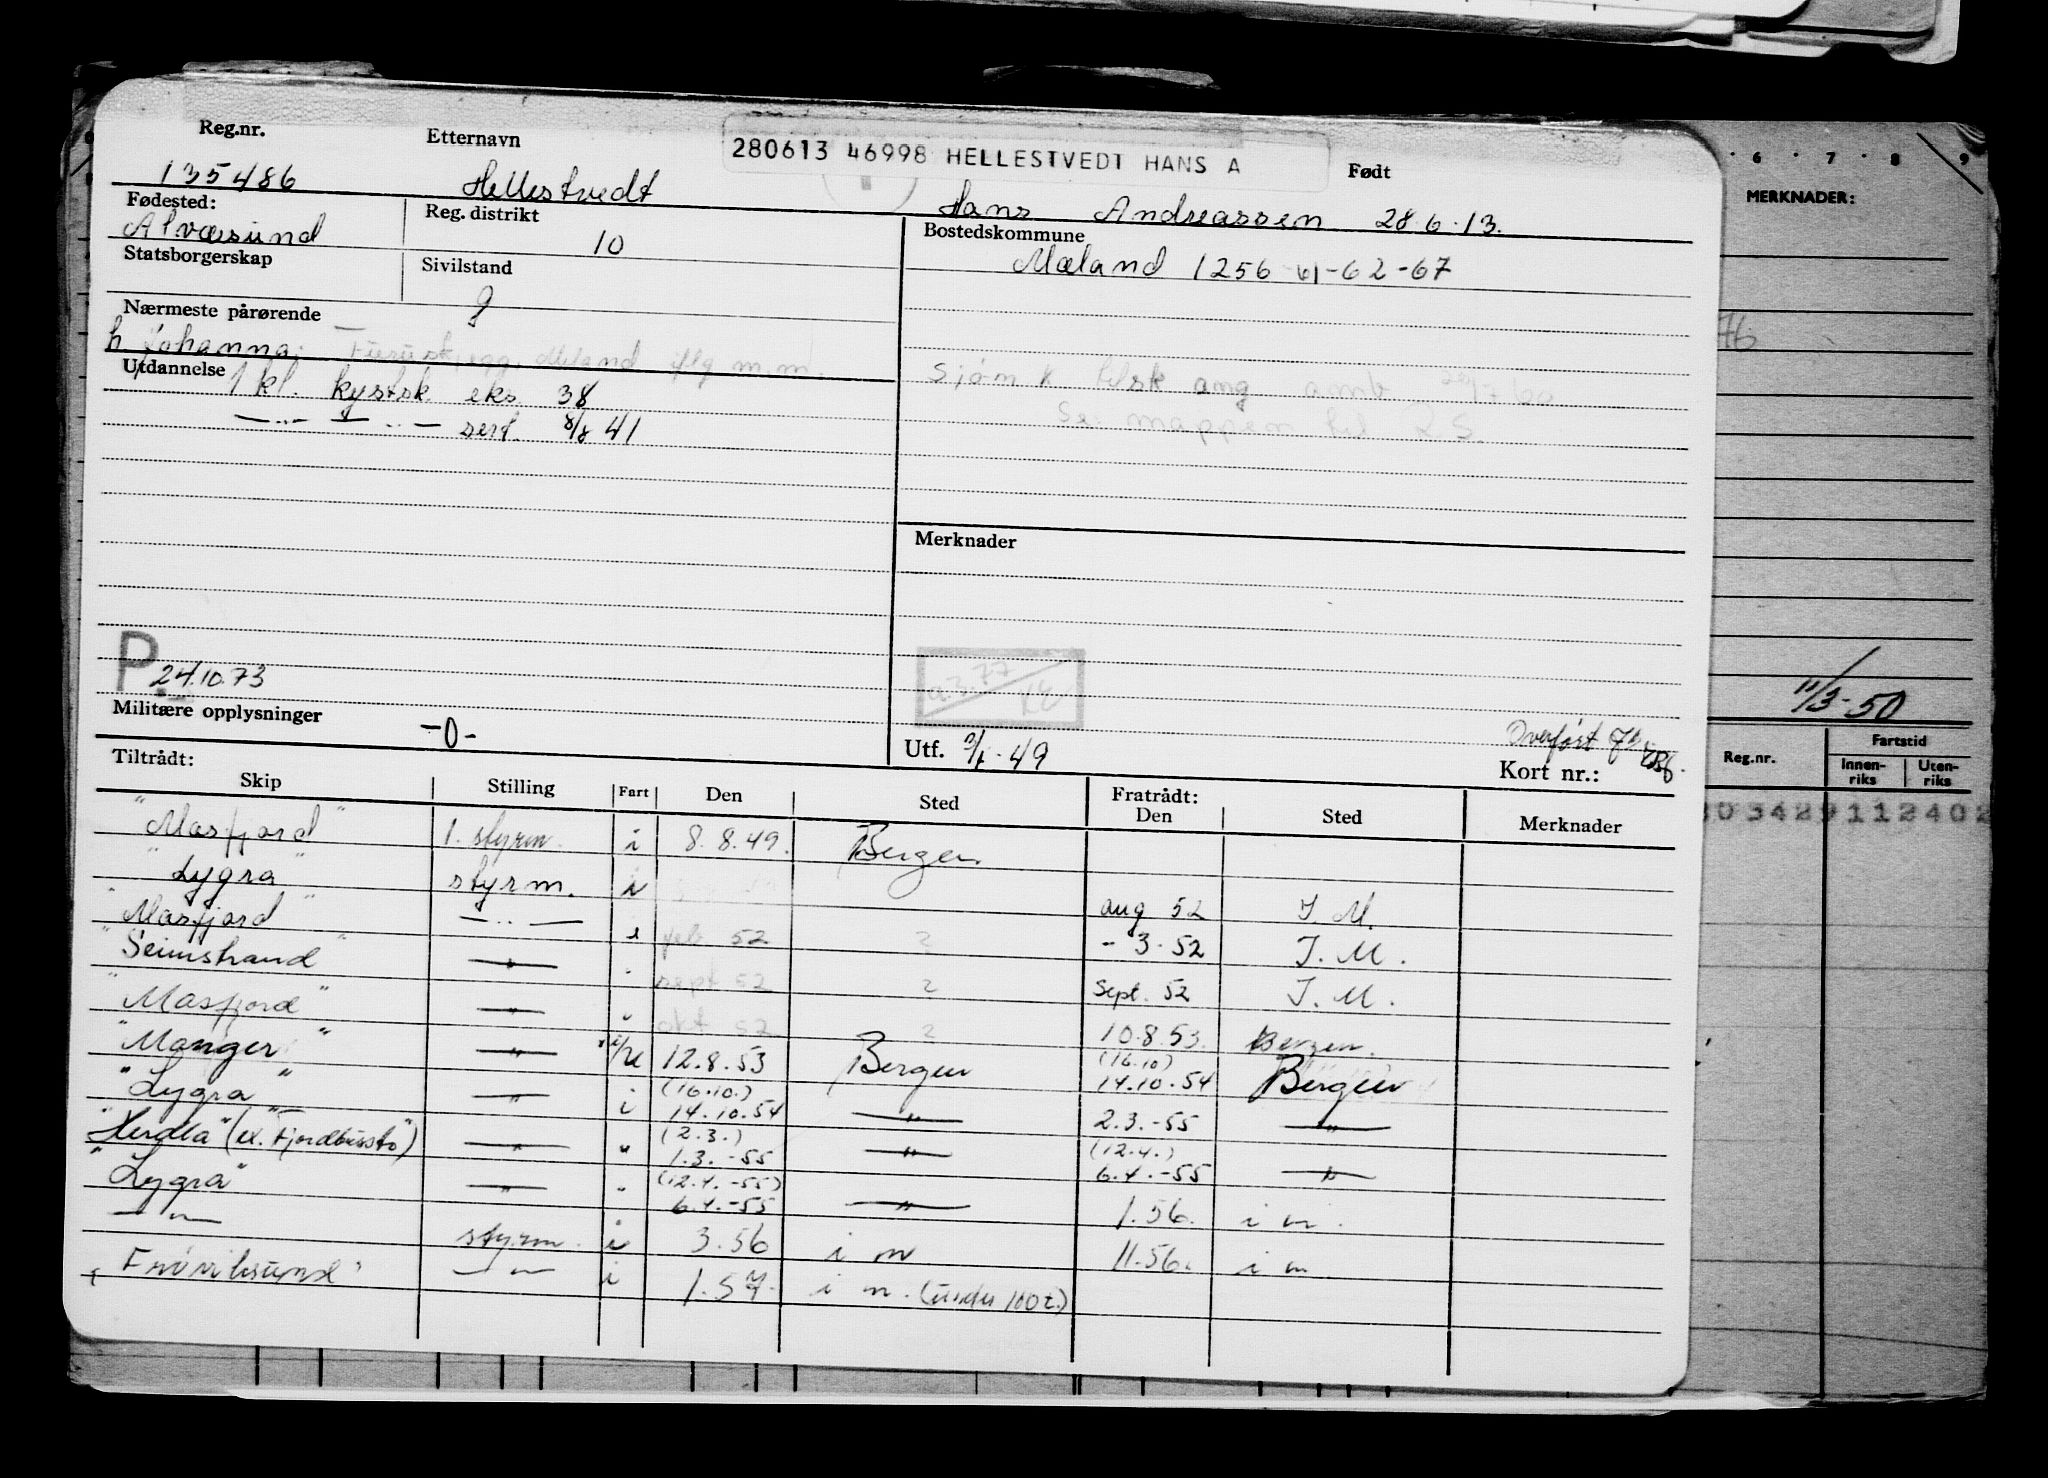 Reg.nr. Etternavn 280613 46998 HELLESTVEDT HANS A Født
135486 Hellestvedt Hans Andreassen 28.6.13.
Fødested: Reg. distrikt Bostedskommune
Alværsund 10 Mæland 1256 61-62-67
Statsborgerskap Sivilstand
g
Nærmeste pårørende
h Johanna, Meland iflg m.m.
Utdannelse
1 kl. kystsk. eks. 38
—..— 1 —..— sert. 8/8 41
Sjøm k tilsk ang amb
Se mappen til R S.
Merknader
P. 24.10.73
Militære opplysninger
-0-
Utf. 49
Overført
Kort nr.:
Tiltrådt: Fratrådt:
Skip Stilling Fart Den Sted Den Sted Merknader
"Masfjord" 1. styrm. i 8.8.49. Bergen.
"Lygra" styrm. i aug 52 I. M.
"Masfjord" —..— i feb 52 ? - 3-52 I. M.
"Seimstrand" —"— sept 52 ? Sept. 52 I. M.
"Masfjord" —"— okt 52 ? 10.8.53. Bergen.
"Manger" —"— i/u 12.8.53 Bergen (16.10) 14.10.54 Bergen
"Lygra" —"— i (16.10.) 14.10.54 —"— 2.3.-55 —"—
"Herdla" (ex. Fjordbussto) —"— " (2.3.) 1.3.-55 —"— (12.4.) 6.4.-55 —"—
"Lygra" —"— " (12.4.-55) 6.4.-55 —"— 1.56. i m.
—"— styrm. i 3.56 i m 11.56. i m
"Frøviksund" —"— i 1.57. i m. (under 100 t.)
6 7 8 9
MERKNADER:
76
11/3-50
Reg.nr. Fartstid
Innenriks Utenriks
03429112402